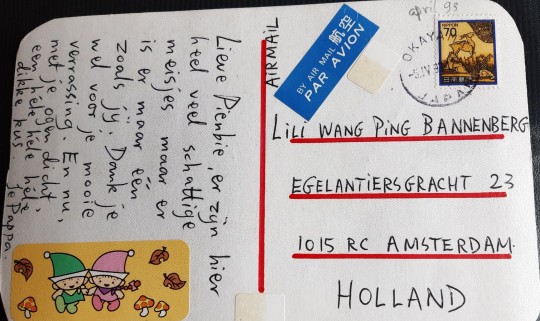 Lieve Pienbie, er zijn hier
heel veel schattige
meisjes maar er
is er maar één
zoals jij. Dank je
wel voor je mooie
verrassing. En nu,
met je ogen dicht,
een hele hele hele
dikke kus,
je Pappa.
AIRMAIL
BY AIR MAIL 航空
PAR AVION
93
NIPPON
70
日本郵便
OKAYA
-5.IV
JAPAN
LILI WANG PING BANNENBERG
EGELANTIERSGRACHT 23
1015 RC AMSTERDAM.
HOLLAND